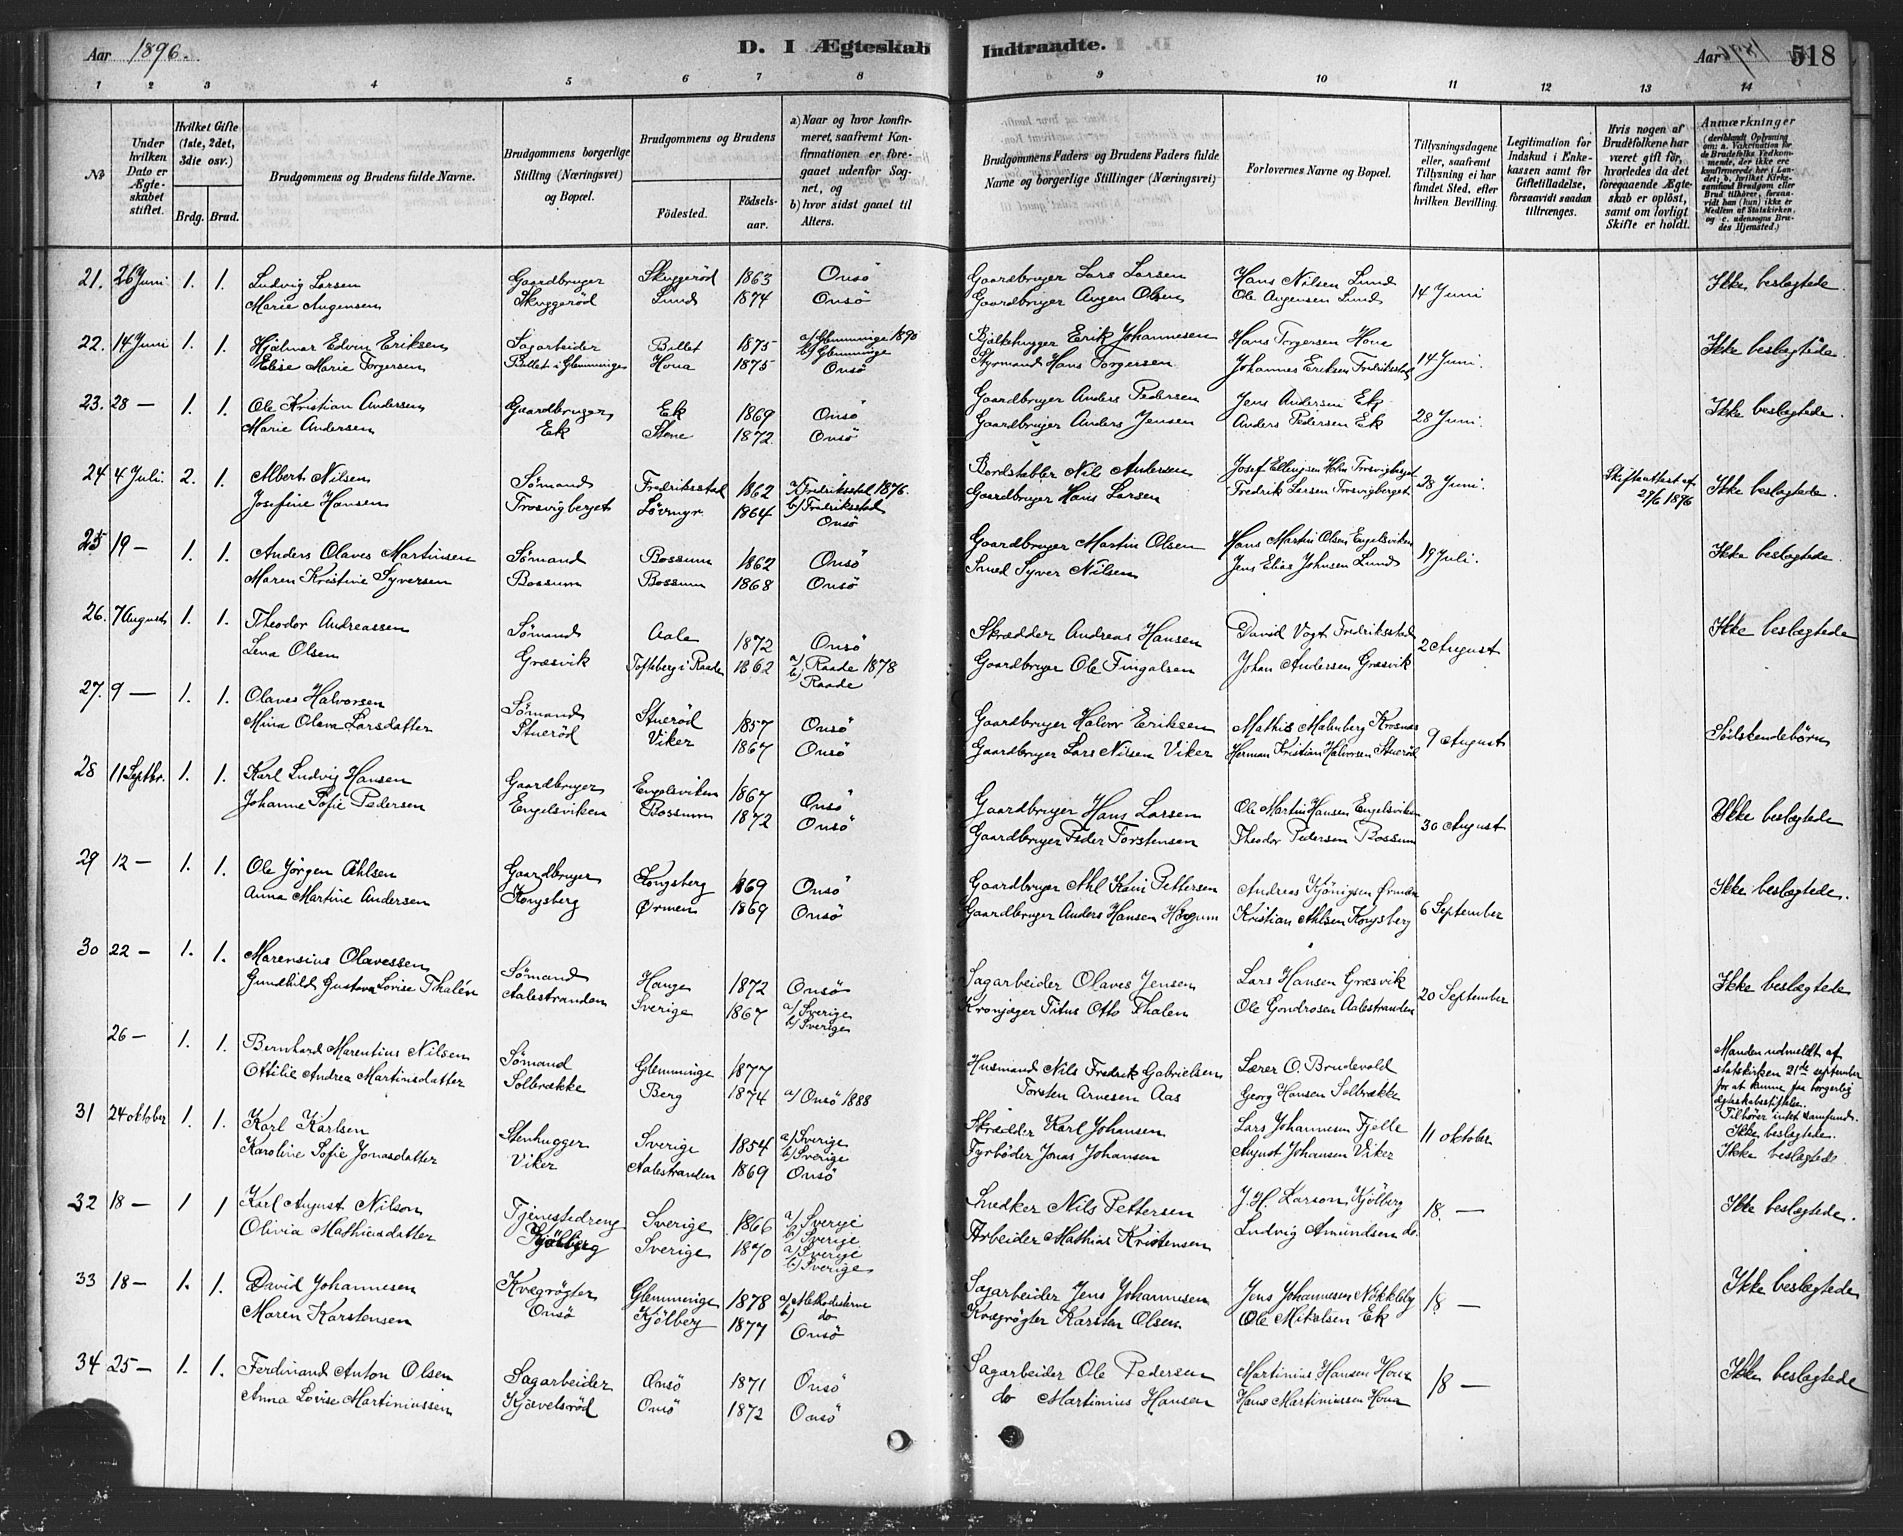 Aar 1896. D. I Ægteskab Indtraadte. Aar 1896 518
1 2 3 4 5 6 7 8 9 10 11 12 13 14
No
Under hvilken Dato er Ægteskabet stiftet.
Hvilket Gifte (1ste, 2det, 3die osv.)
Brdg. Brud.
Brudgommens og Brudens fulde Navne.
Brudgommens borgerlige Stilling (Næringsvei) og Bopæl.
Brudgommens og Brudens
Fødested. Fødselsaar.
a) Naar og hvor konfirmeret, saafremt Konfirmationen er foregaaet udenfor Sognet, og
b) hvor sidst gaaet til Alters.
Brudgommens Faders og Brudens Faders fulde Navne og borgerlige Stillinger (Næringsvei)
Forlovernes Navne og Bopæl.
Tillysningsdagene eller, saafremt Tillysning ei har fundet Sted, efter hvilken Bevilling.
Legitimation for Indskud i Enkekassen samt for Giftetilladelse, forsaavidt saadan tiltrænges.
Hvis nogen af Brudefolkene har været gift før, hvorledes da det foregaaende Ægteskab er opløst, samt om lovligt Skifte er holdt.
Anmærkninger
(deriblandt Oplysning om: a. Vakcination for de Brudefolks Vedkommende, der ikke ere konfirmerede her i Landet; b. hvilket Kirkesamfund Brudgom eller Brud tilhører, forsaavidt han (hun) ikke er Medlem af Statskirken, og c. udensogns Brudes Hjemsted.)
21. 26 Juni 1. 1. Ludvig Larsen Gaardbruger Skyggeröd 1863 Onsö Gaardbruger Lars Larsen Hans Nilsen Lund 14 Juni Ikke beslægtede.
Marie Augensen Skyggeröd Lund 1874 Onsö Gaardbruger Augen Olsen Ole Augensen Lund
22. 14 Juni 1. 1. Hjalmar Edvin Eriksen Sagarbeider Billet 1875 a/ Glemminge 1890 Bjelkehugger Erik Johannesen Hans Torgersen Hona 14 Juni. Ikke beslægtede.
b/ Glemminge
Elise Marie Torgersen Billet i Glemminge Hona 1875 Onsö Styrmand Hans Torgersen Johannes Eriksen Fredriksstad
23. 28 — 1. 1. Ole Kristian Andersen Gaardbruger Ek 1869 Onsö Gaardbruger Anders Pedersen Jens Andersen Ek 28 Juni. Ikke beslægtede.
Marie Andersen Ek Stene 1872. Onsö Gaardbruger Anders Jensen Anders Pedersen Ek
24 4 Juli. 2. 1. Albert Nilsen Sömand Fredriksstad 1862 a/ Fredriksstad 1876. Bordstabler Nils Andersen Josef Ellingsen Holm Trosvigberget 28 Juni. Skifteattest af 29/6 1896 Ikke beslægtede.
b/ Fredriksstad
Josefine Hansen Trosvigberget Lövmyr 1864 Onsö Gaardbruger Hans Larsen Fredrik Larsen Trosvigberget
25 19 — 1. 1. Anders Olaves Martinsen Sömand Bossum 1862 Onsö Gaardbruger Martin Olsen Hans Martin Olsen Engelsviken 19 Juli. Ikke beslægtede.
Maren Kristine Syversen Bossum Bossum 1868 Onsö Smed Syver Nilsen Jens Elias Johnsen Lund
26. 7 August 1. 1. Theodor Andreassen Sömand Aale 1872 Onsö Skrædder Andreas Hansen David Vogt Fredriksstad 2 August Ikke beslægtede
Lena Olsen Græsvik Tofteberg i Raade 1862 a/ Raade 1878 Gaardbruger Ole Fingalsen Johan Andersen Græsvik
b/ Raade
27. 9 — 1. 1. Olaves Halvorsen Sömand Stueröd 1857 Onsö Gaardbruger Halvor Eriksen Mathis Malmberg Krosnæs 9 August Södskendebörn
Mina Olava Larsdatter Stueröd Viker 1867 Onsö Gaardbruger Lars Nilsen Viker Herman Kristian Halvorsen Stueröd
28 11 Septbr. 1. 1. Karl Ludvig Hansen Gaardbruger Engelsviken 1867 Onsö Gaardbruger Hans Larsen Ole Martin Hansen Engelsviken 30 August Ikke beslægtede
Johanne Sofie Pedersen Engelsviken Bossum 1872 Onsö Gaardbruger Peder Torstensen Theodor Pedersen Bossum
29 12 — 1. 1. Ole Jörgen Ahlsen Gaardbruger Kongsberg 1869 Onsö Gaardbruger Ahl Kaini Pettersen Andreas Kjönigsen Ørmen 6 September Ikke beslægtede.
Anna Martine Andersen Kongsberg Ørmen 1869 Onsö Gaardbruger Anders Hansen Haugum Kristian Ahlsen Kongsberg
30 22 — 1. 1. Marensius Olavessen Sömand Hauge 1872 Onsö Sagarbeider Olaves Jensen Lars Hansen Græsvik 20 September Ikke beslægtede
Gundhild Gustava Lovise Thalén Aalestranden Sverige 1867 a/ Sverige Kronjæger Titus Otto Thalen Ole Gondrosen Aalestranden
b/ Sverige
26 — 1. 1. Bernhard Marentius Nilsen Sömand Glemminge 1877 Husmand Nils Fredrik Gabrielsen Lærer O. Brudevold Manden udmeldt af statskirken 21de september for at kunne faa borgerlig ægteskabsstiftelse. Tilhører intet samfund.
Ottilie Andrea Martinsdatter Solbrække Berg 1874 a/ Onsö 1888 Torsten Arnesen Aas Georg Hansen Solbrække Ikke beslægtede.
31 24 oktober 1. 1. Karl Karlsen Stenhugger Sverige 1854 a/ Sverige Skrædder Karl Johansen Lars Johannesen Fjelle 11 oktober Ikke beslægtede
b/ Sverige
Karoline Sofie Jonasdatter Viker Aalestranden 1869 Onsö Fyrböder Jonas Johansen August Johansen Viker
32 18 — 1 1 Karl August Nilson Tjenestedreng Sverige 1866 a/ Sverige Snedker Nils Pettersen J. H. Larson Kjölberg 18. — Ikke beslægtede.
b/ Sverige
Olivia Mathiasdatter Kjölberg Sverige 1870 a/ Sverige Arbeider Mathias Kristensen Ludvig Amundsen do.
b/ Sverige
33 18 — 1. 1. David Johannesen Kvægrögter Glemminge 1878 a/ Methodisterne Sagarbeider Jens Johannesen Jens Johannesen Nökkleby 18 — Ikke beslægtede
b/ do
Maren Karstensen Onsö Kjölberg 1877 Onsö Kvægrögter Karsten Olsen Ole Mikalsen Ek
34 25 — 1. 1. Ferdinand Anton Olsen Sagarbeider Onsö 1871 Onsö Sagarbeider Ole Pedersen Martinius Hansen Hona 18 — Ikke beslægtede
Anna Lovise Martiniussen Kjævelsröd Onsö 1872 Onsö do Martinius Hansen Hans Martiniussen Hona